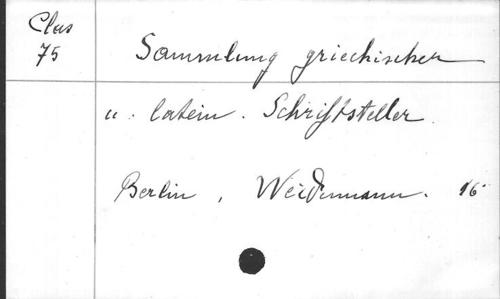 Clas
75
Sammlung griechischer
u. latein. Schriftsteller.
Berlin, Weidmann. 16°